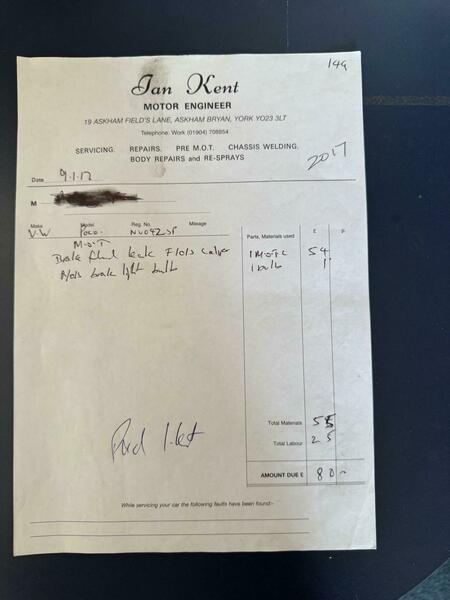 149
Ian Kent
MOTOR ENGINEER
19 ASKHAM FIELD'S LANE, ASKHAM BRYAN, YORK YO23 3LT
Telephone: Work (01904) 708854
SERVICING. REPAIRS. PRE M.O.T. CHASSIS WELDING.
BODY REPAIRS and RE-SPRAYS
2017
Date 9.1.17
M
Make Model Reg. No. Mileage
V.W Polo
Parts, Materials used £ P
M.O.T 1 M.O.T.C 54
Brake fluid leak F/O/S caliper
N/O/S brake light bulb 1 bulb 1
Total Materials 55
Total Labour 25
AMOUNT DUE £ 80 -
Paid I. Kent
While servicing your car the following faults have been found:-